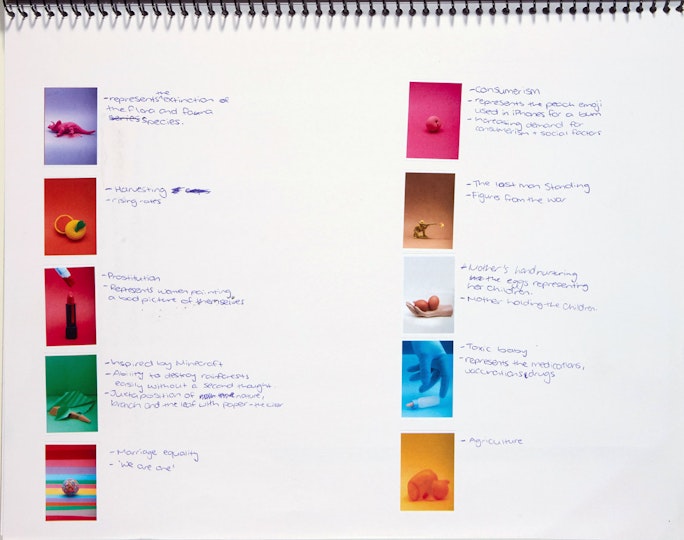 - represents the extinction of
the Flora and Fauna
series species.
- Harvesting
- rising rates
- Prostitution
- Represents women painting
a bad picture of themselves
- Inspired by Minecraft
- Ability to destroy rainforests
easily without a second thought.
- Juxtaposition of nature,
branch and the leaf with paper - the
- Marriage equality
- 'We are one'
- Consumerism
- represents the peach emoji
used in iPhones for a bum
- Increasing demand for
consumerism + social factors
- The last man standing
- Figures from the war
- Mother's hand nurturing
the eggs representing
her children.
- Mother holding the children.
- Toxic baby
- represents the medications,
vaccinations, drugs
- Agriculture